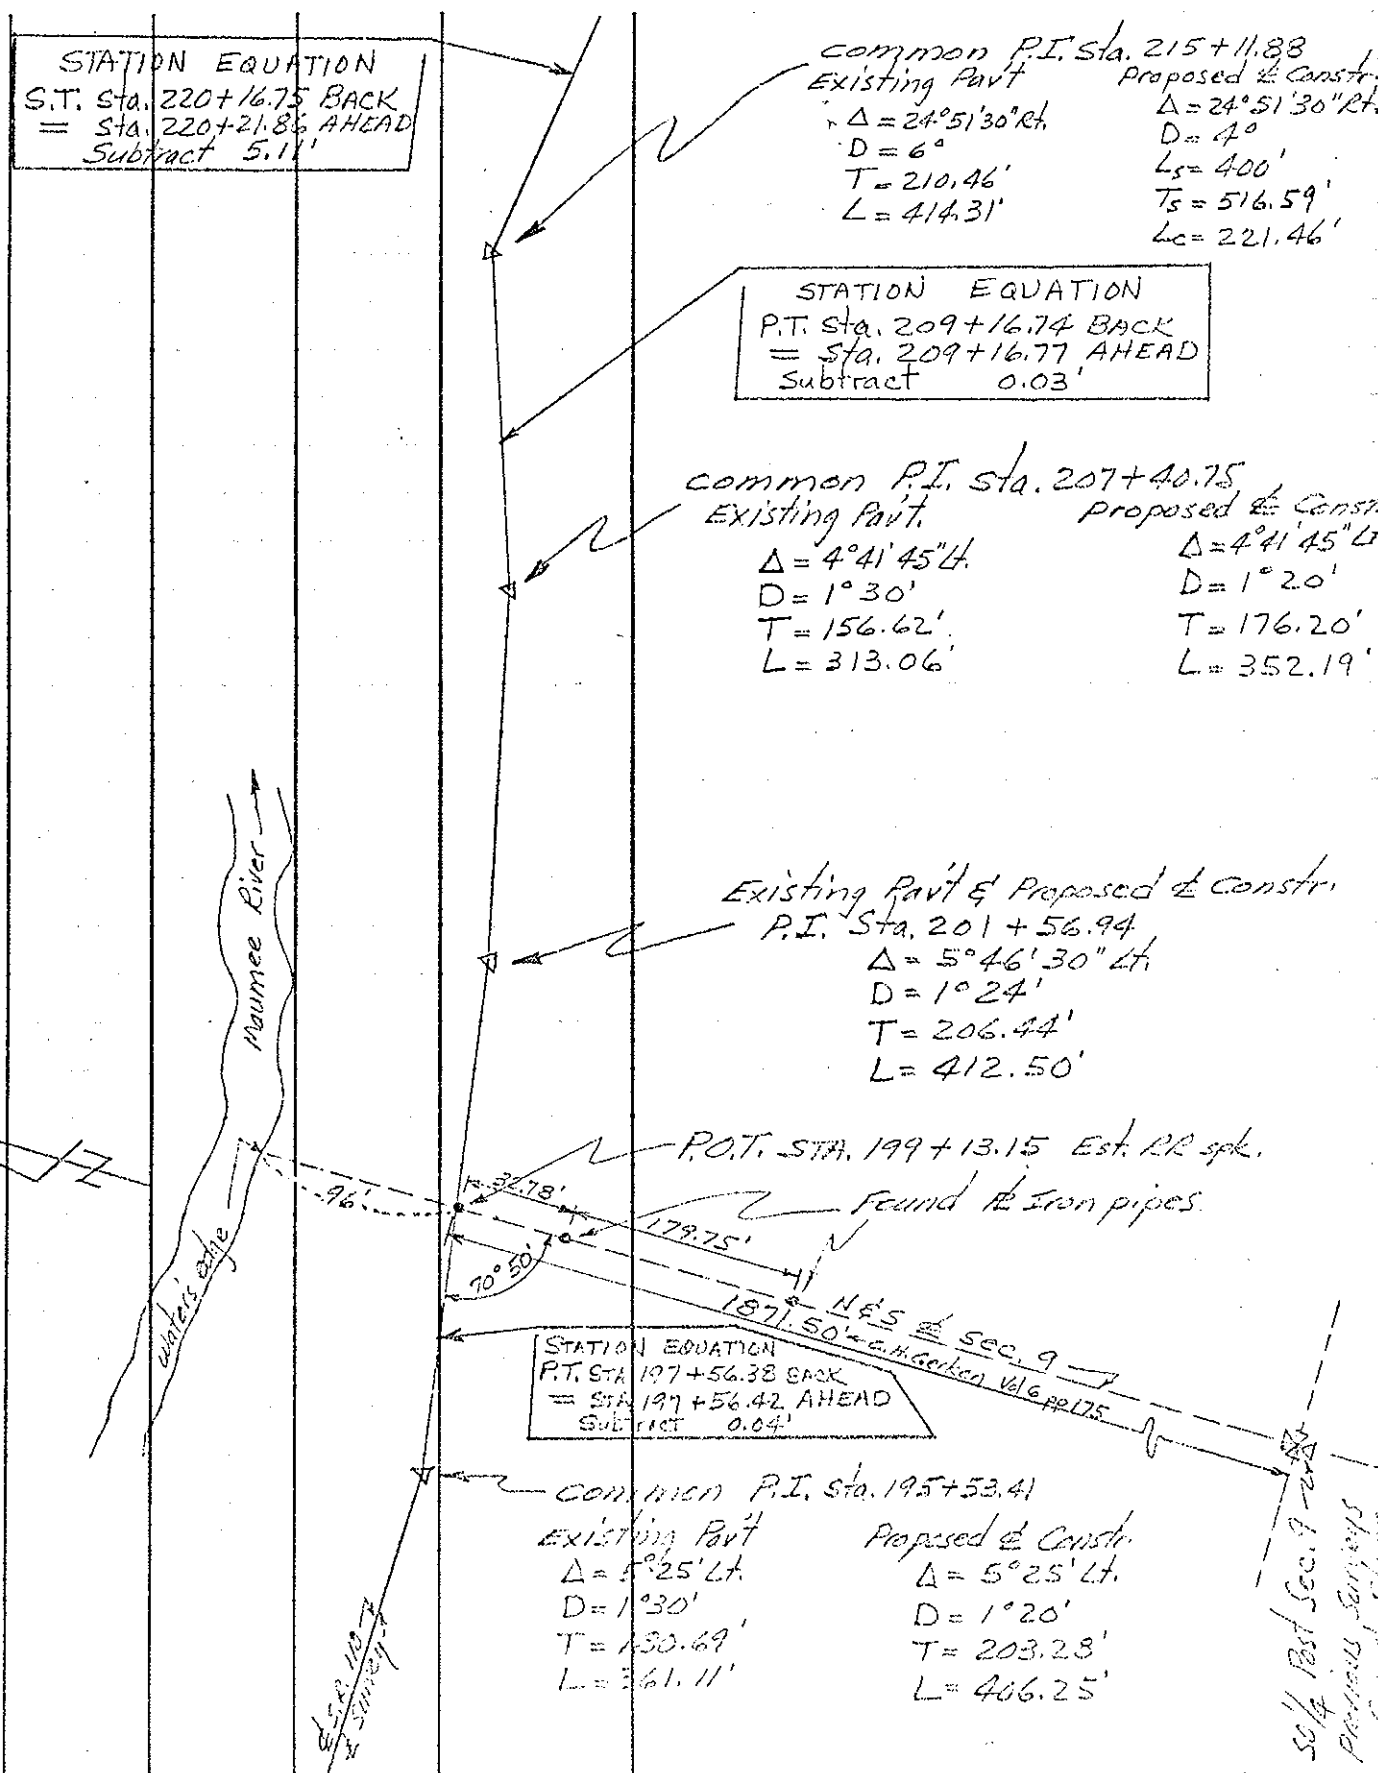 STATION EQUATION
S.T. Sta. 220+16.75 BACK
= Sta. 220+21.86 AHEAD
Subtract 5.11'
common P.I. Sta. 215+11.88
Existing Pav't
Δ = 24°51'30" Rt.
D = 6°
T = 210.46'
L = 414.31'
Proposed ℄ Constr.
Δ = 24°51'30" Rt.
D = 4°
Ls = 400'
Ts = 516.59'
Lc = 221.46'
STATION EQUATION
P.T. Sta. 209+16.74 BACK
= Sta. 209+16.77 AHEAD
Subtract 0.03'
common P.I. Sta. 207+40.75
Existing Pav't.
Δ = 4°41'45" Lt.
D = 1°30'
T = 156.62'
L = 313.06'
Proposed ℄ Constr
Δ = 4°41'45" Lt
D = 1°20'
T = 176.20'
L = 352.19'
Maumee River
Existing Pav't & Proposed ℄ Constr.
P.I. Sta. 201 + 56.94
Δ = 5°46'30" Lt.
D = 1°24'
T = 206.44'
L = 412.50'
P.O.T. STA. 199+13.15 Est. RR spk.
Found Iron pipes.
N
96'
32.78'
179.75'
70°50'
water's edge
N & S ℄ Sec. 9
1871.50' = C.H. Gerken Vol 6 pp 175
STATION EQUATION
P.T. STA 197+56.38 BACK
= STA 197+56.42 AHEAD
Subtract 0.04'
common P.I. Sta. 195+53.41
Existing Pav't
Δ = 5°25' Lt.
D = 1°30'
T = 180.69'
L = 361.11'
Proposed ℄ Constr.
Δ = 5°25' Lt.
D = 1°20'
T = 203.28'
L = 406.25'
℄ S.R. 110
℄ Survey
So 1/4 Post Sec. 9
Previous Surveys